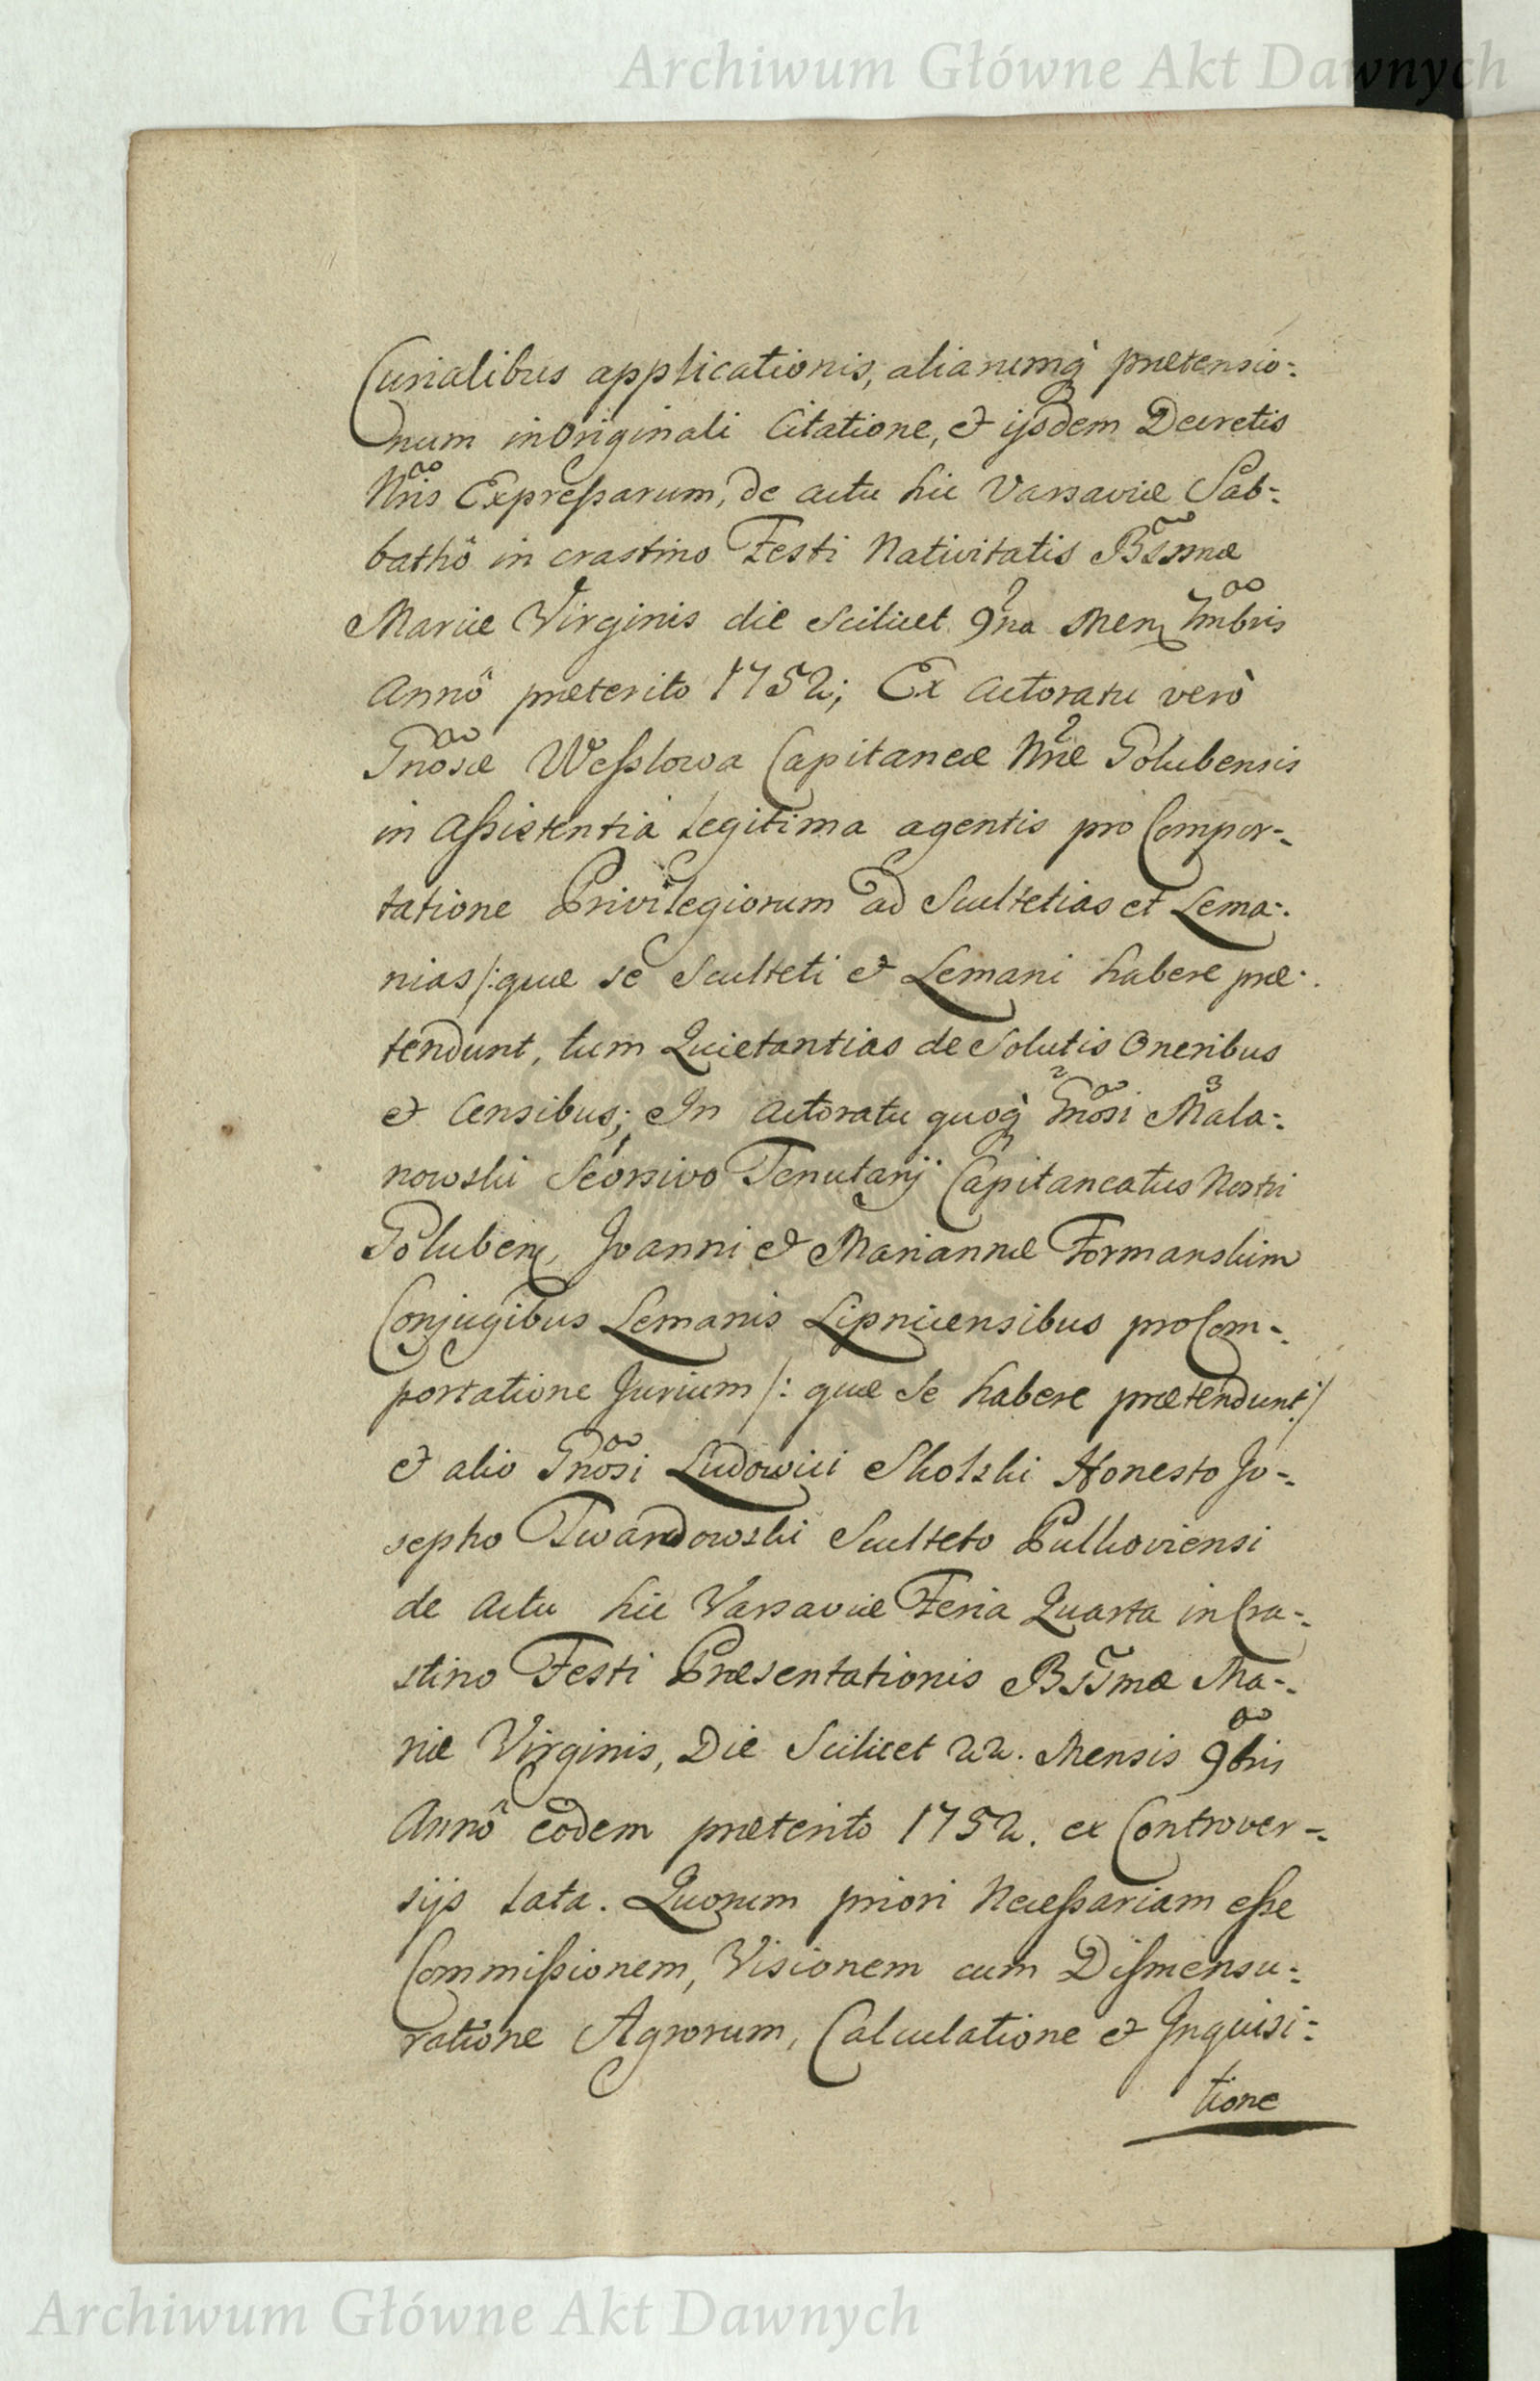 Archiwum Główne Akt Dawnych
Curialibus applicationis, aliarumq́ prætensio:
num in Originali Citatione, et ijsdem Decretis
Nris Expressarum, de actu hic Varsaviæ Sab-
bathô in crastino Festi Nativitatis Bssmæ
Mariæ Virginis die scilicet 9na Mens 7mbris
Annô præterito 1752; Ex Actoratu verò
Gnosæ Wesslowa Capitaneæ Nræ Golubensis
in Assistentia legitima agentis pro Compor-
tatione Privilegiorum ad Scultetias et Lema-
nias /: quæ se Sculteti et Lemani habere præ-
tendunt, tum Quietantias de Solutis Oneribus
et Censibus; In Actoratu quoq́ Gnosi Mala:
nowski Seorsivo Tenutarij Capitaneatus Nostri
Goluben, Joanni et Mariannæ Formanskim
Conjugibus Lemanis Lipnicensibus pro Com-
portatione Jurium /: quæ se habere prætendunt :/
et alio Gnosi Ludowici Skolski Honesto Jo-
sepho Twardowski Sculteto Pulkoviensi
de Actu hic Varsaviæ Feria Quarta in Cra-
stino Festi Præsentationis Bssmæ Ma-
riæ Virginis, Die Scilicet 22. Mensis 9bris
Annô eodem præterito 1752. ex Controver-
sijs lata. Quorum priori Necessariam esse
Commissionem, Visionem cum Dismensu:
ratione Agrorum, Calculatione et Inquisi:
tione
Archiwum Główne Akt Dawnych